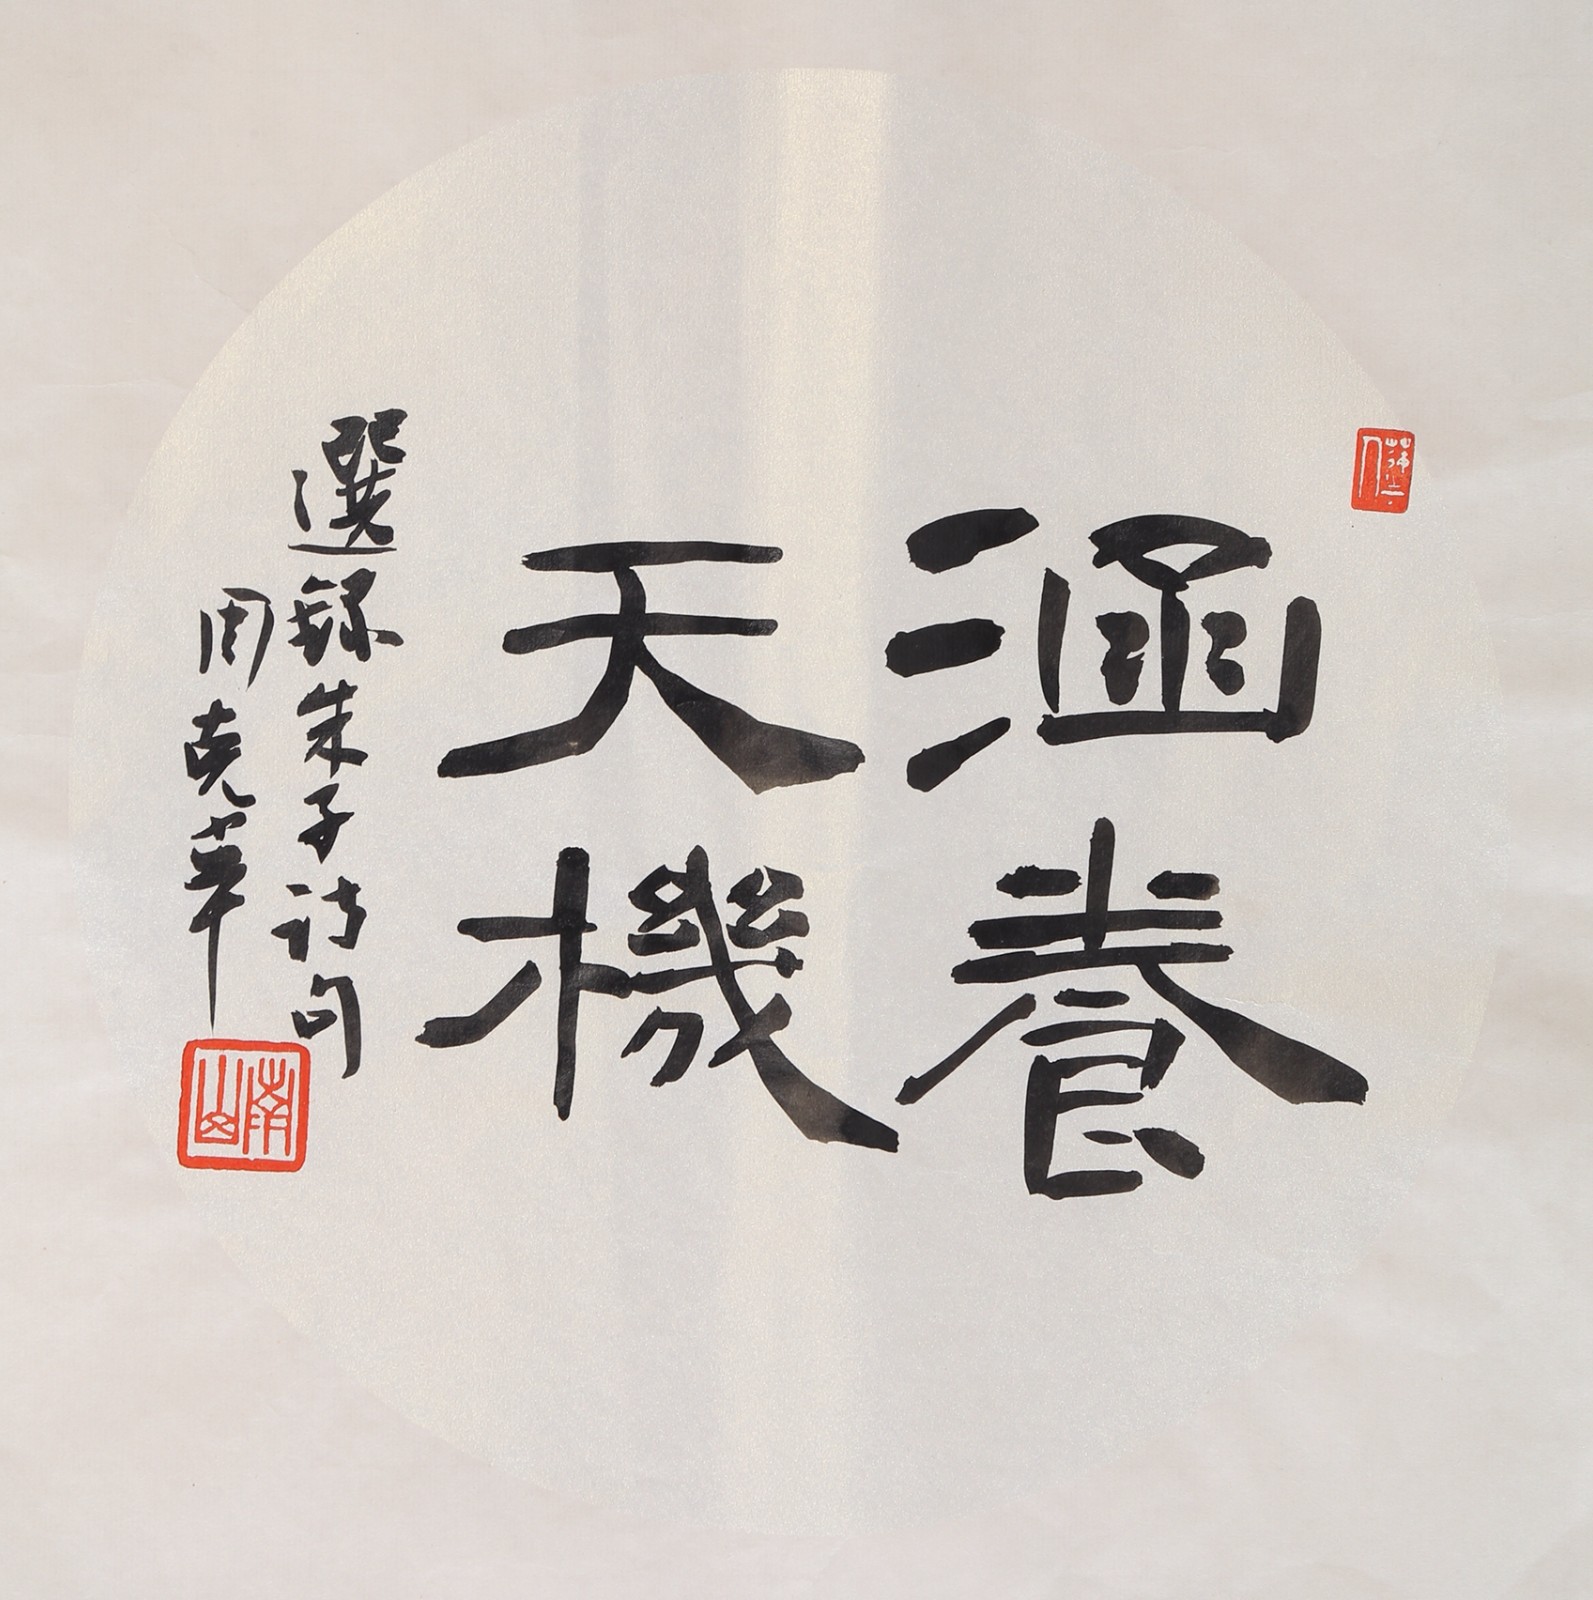 涵養
天機
選録朱子詩句
周克華